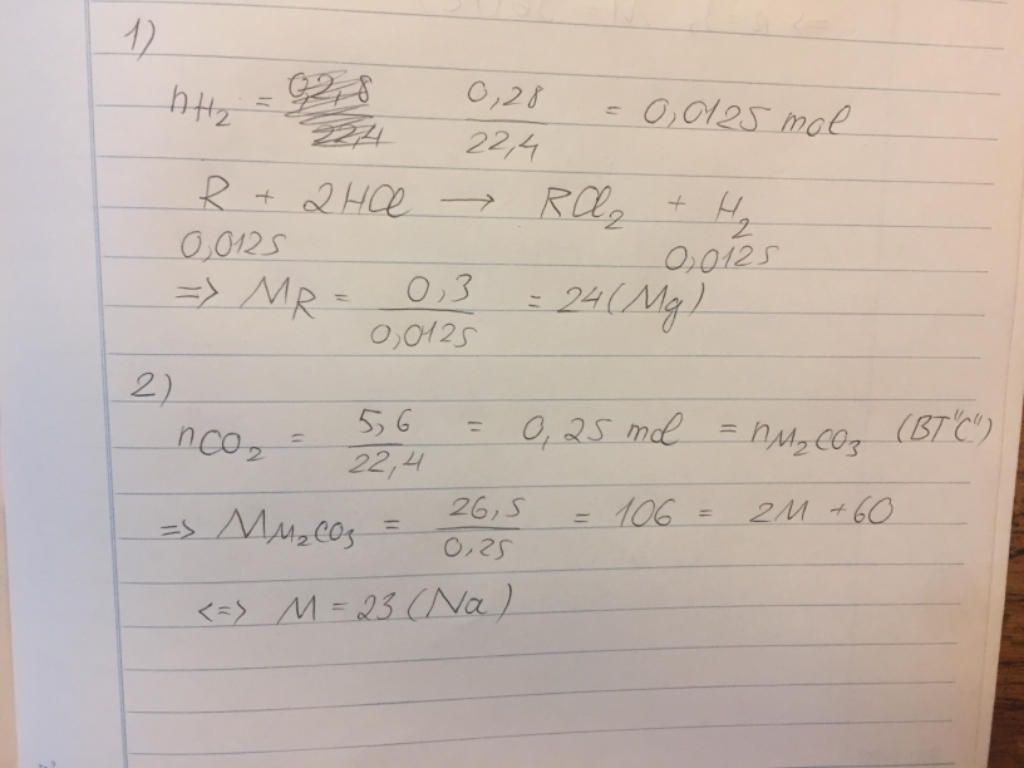 1)
nH₂ = 0,28/22,4 = 0,0125 mol
R + 2HCl → RCl₂ + H₂
0,0125 0,0125
=> MR = 0,3/0,0125 = 24 (Mg)
2)
nCO₂ = 5,6/22,4 = 0,25 mol = nM₂CO₃ (BT"C")
=> MM₂CO₃ = 26,5/0,25 = 106 = 2M + 60
<=> M = 23 (Na)